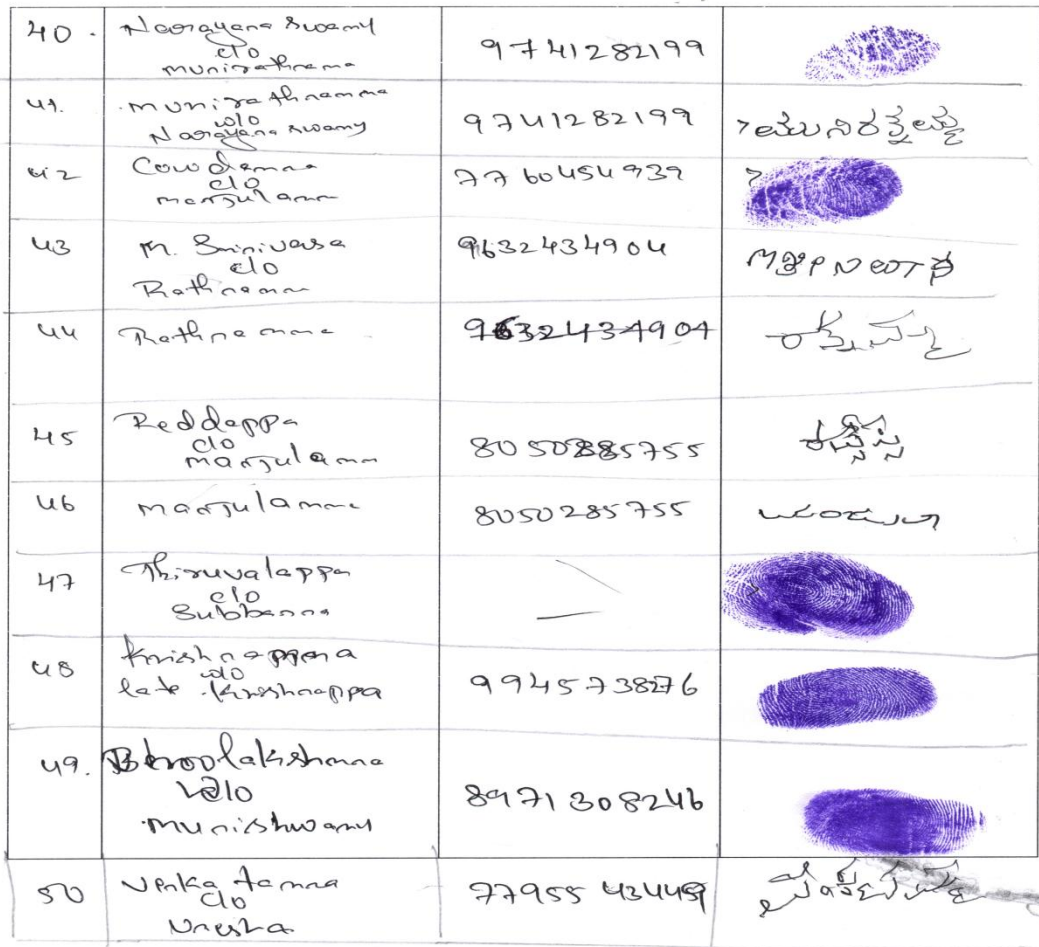 40.
Narayana Swamy
c/o
munirathnama
9741282199
41.
munirathnamma
w/o
Narayana swamy
9741282199
ಮುನಿರತ್ನಮ್ಮ
42
Cowdamma
c/o
manjulamma
7760454939
43
M. Srinivasa
c/o
Rathnamma
9632434904
44
Rathnamma
9632434904
ರತ್ನಮ್ಮ
45
Reddappa
c/o
manjulamma
8050285755
46
manjulamma
8050285755
47
Thiruvalappa
c/o
Subbanna
48
w/o
late. Krishnappa
9945738276
49.
w/o
munishwamy
8971308246
50
Venkatamma
c/o